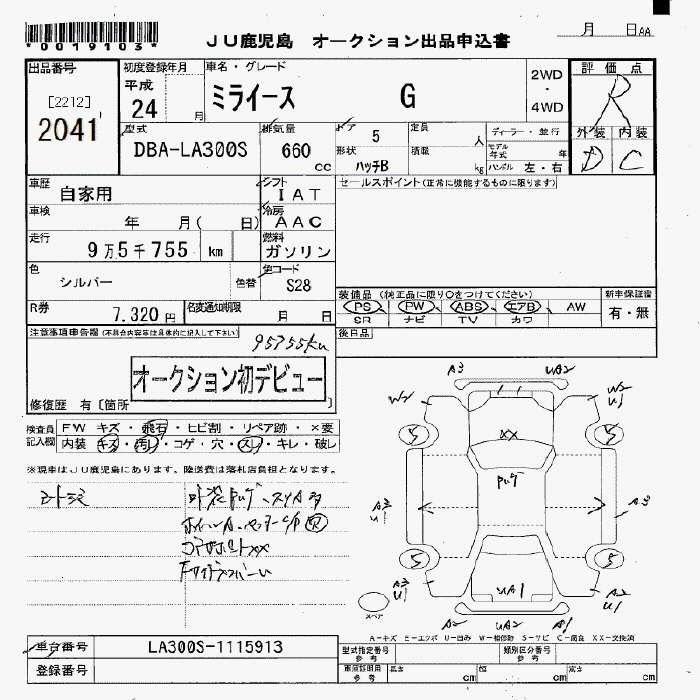 *0019103*
JU鹿児島 オークション出品申込書
月 日AA
出品番号
[2212]
2041
初度登録年月
平成
24 月
車名・グレード
ミライース G
2WD
・
4WD
評価点
R
外装 内装
D C
型式
DBA-LA300S
排気量
660
cc
ドア 5
形状 ハッチB
定員 人
積載 kg
ディーラー・並行
モデル年式 年
ハンドル 左・右
車歴
自家用
シフト
IAT
セールスポイント(正常に機能するものに限ります)
車検
年 月( 日)
冷房
AAC
走行
9万5千755 km
燃料
ガソリン
色
シルバー
色替
色コード
S28
装備品(純正品に限り○をつけてください)
新車保証書
PS PW ABS エアB AW
SR ナビ TV カワ
有・無
R券
7.320円
名変通知期限
月 日
後日品
注意事項申告欄(不具合内容等は具体的に記入して下さい)
95755km
オークション初デビュー
修復歴 有〔箇所
検査員
記入欄
FW キズ・飛石・ヒビ割・リペア跡・×要
内装・キズ・汚レ・コゲ・穴・スレ・キレ・破レ
※現車はJU鹿児島にあります。陸送費は落札店負担となります。
A3 UA2
W2 W2
U1
5 5
XX
A3
U1
A3
5 5
A3
U1
UA1
A2
U1
A2 UA1
スペア
A-キズ E-エクボ U-凹み W-補修跡 S-サビ C-腐食 XX-交換済
車台番号
LA300S-1115913
登録番号
型式指定番号
参考
類別区分番号
参考
車庫証明用
参考
長さ cm
幅 cm
高さ cm